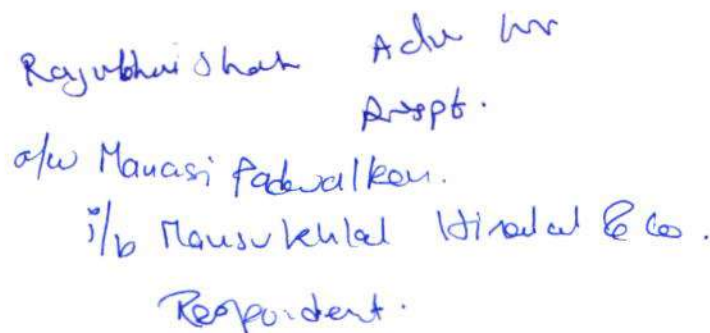 Rajubhai Shah Adv for
Respt.
a/w Manasi Padwalkar.
i/b Mansukhlal Hiralal & Co.
Respondent.